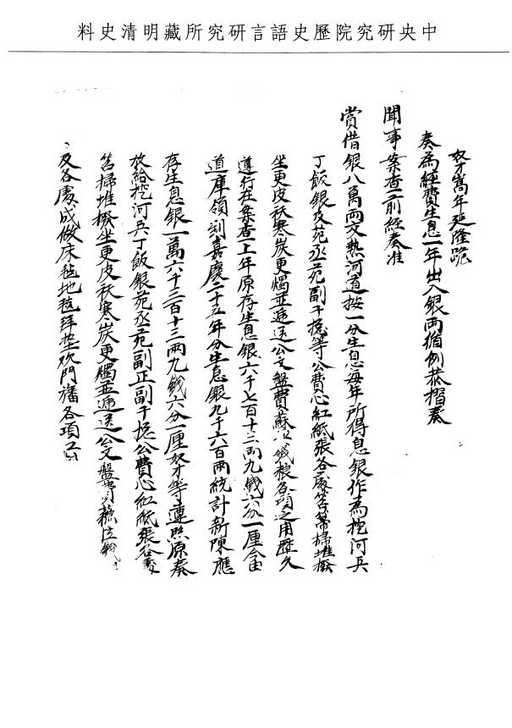 中央研究院歷史語言研究所藏明清史料
奴才嵩年延隆跪
奏為經費生息一年出入銀兩循例恭摺奏
聞事案查前經奏准
賞借銀八萬兩交熱河道按一分生息每年所得息銀作為挖河兵
丁飯銀及苑丞苑副千總等公費心紅紙張各處笤帚掃堆撥
坐更皮袄寒炭更燭並遞送公文盤費蘇拉錢糧各項之用歷久
遵行在案查上年原存生息銀六千七百十三兩九錢六分一厘今由
道庫領到嘉慶二十五年分生息銀九千六百兩統計新陳應
存生息銀一萬六千三百十三兩九錢六分一厘奴才等遵照原奏
放給挖河兵丁飯銀苑丞苑副正副千總公費心紅紙張各處
笤掃堆撥坐更皮袄寒炭更燭並遞送公文盤費蘇拉錢
及各處成做床毡地毡拜墊欢門旛各項